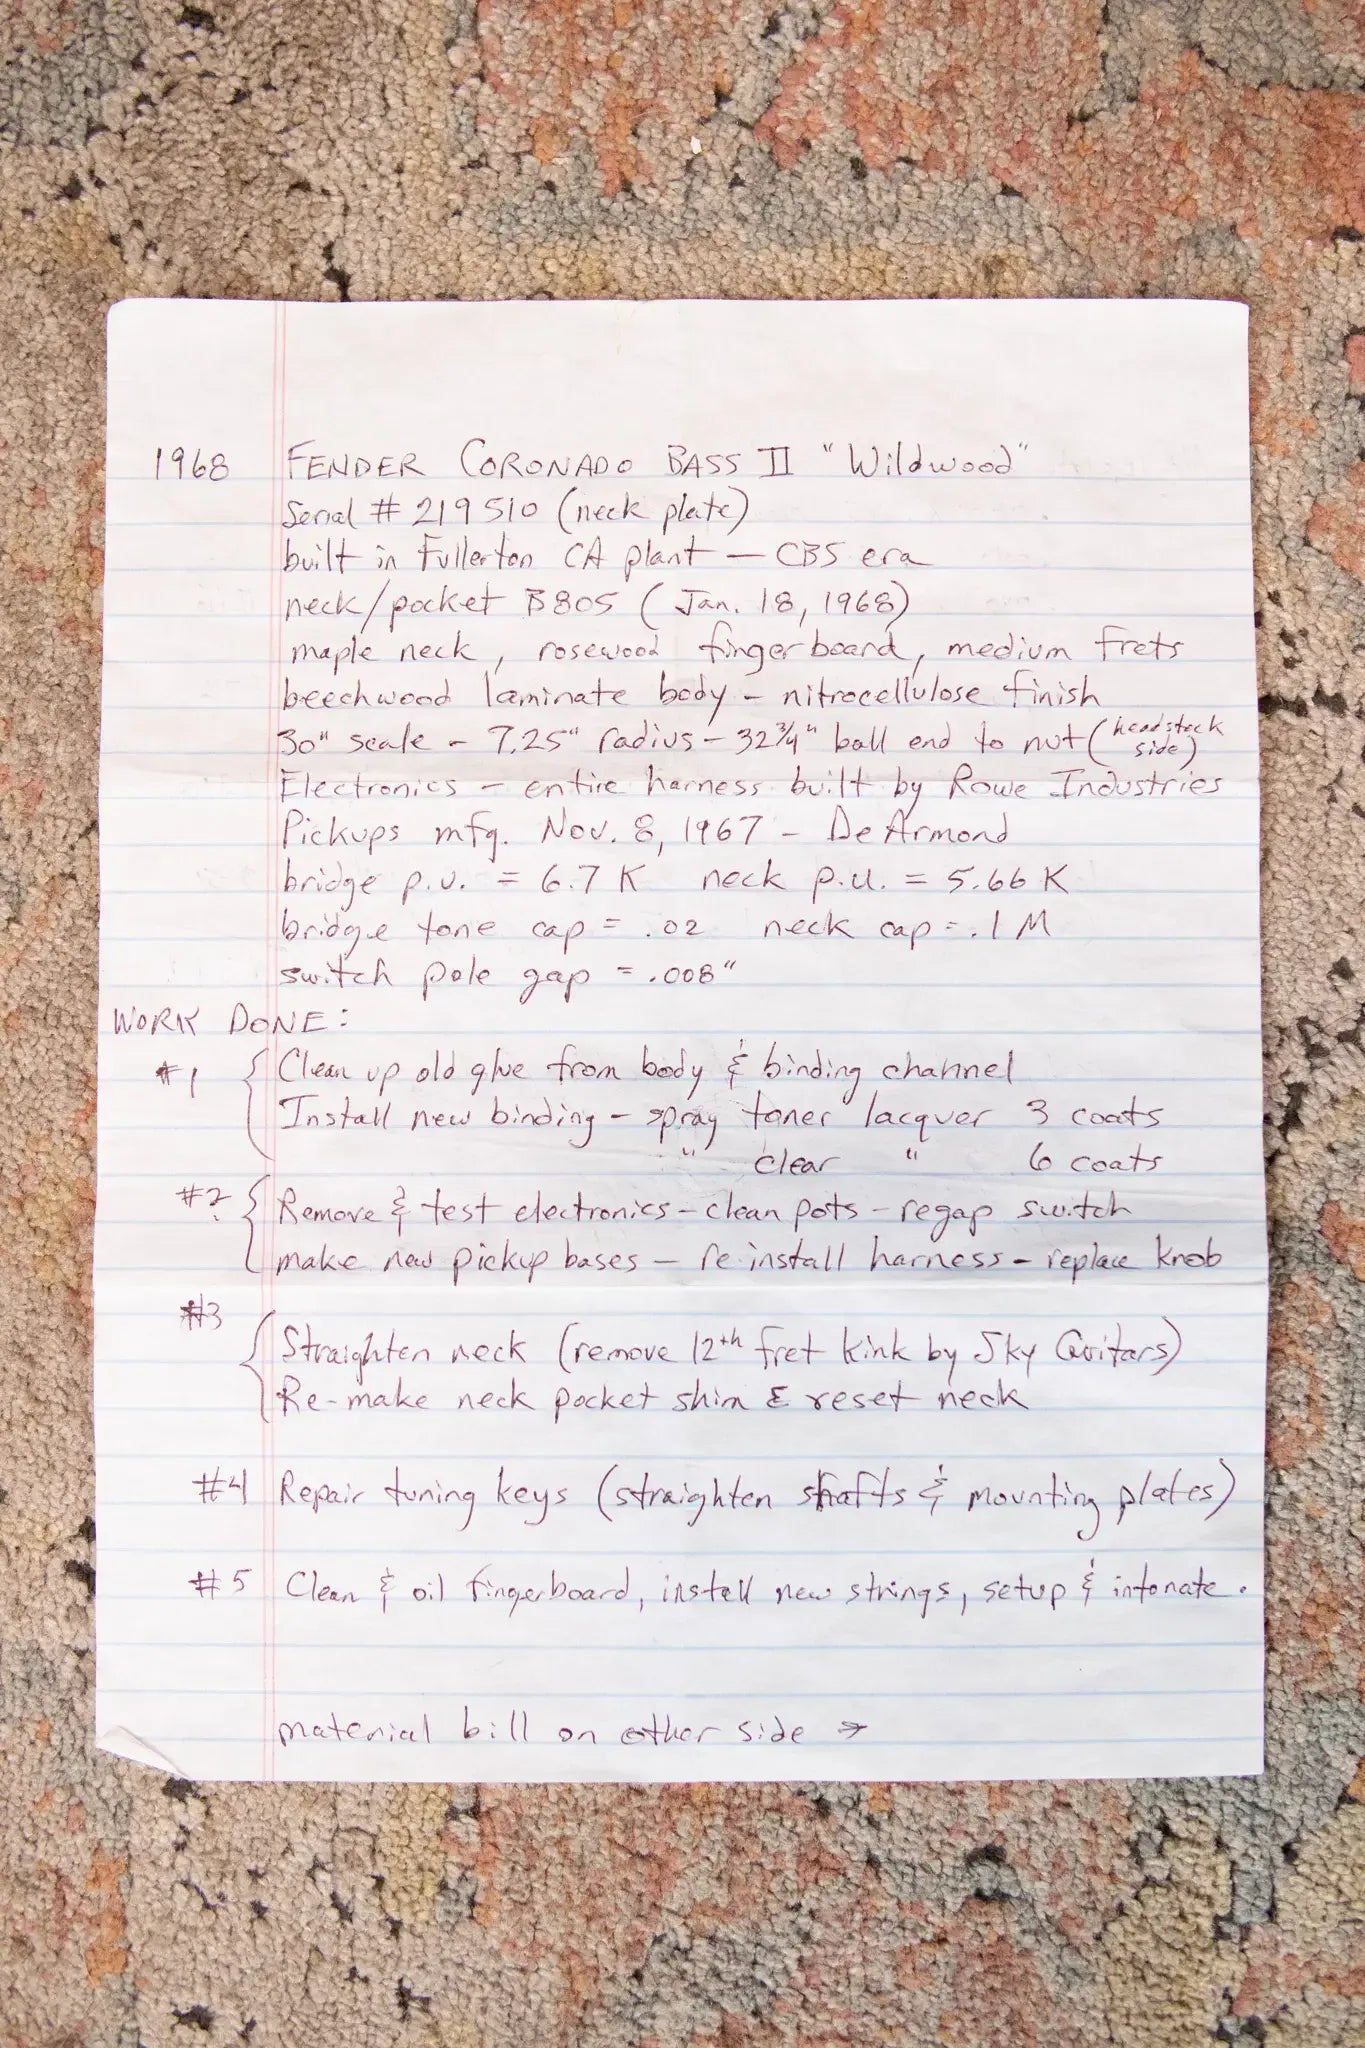 1968 FENDER CORONADO BASS II "Wildwood"
Serial # 219510 (neck plate)
built in Fullerton CA plant — CBS era
neck/pocket B805 (Jan. 18, 1968)
maple neck, rosewood fingerboard, medium frets
beechwood laminate body - nitrocellulose finish
30" scale - 7.25" radius - 32 3/4" ball end to nut (headstock side)
Electronics - entire harness built by Rowe Industries
Pickups mfg. Nov. 8, 1967 - DeArmond
bridge p.u. = 6.7 K neck p.u. = 5.66 K
bridge tone cap = .02 neck cap = .1 M
switch pole gap = .008"
WORK DONE:
#1 { Clean up old glue from body & binding channel
Install new binding - spray toner lacquer 3 coats
" clear " 6 coats
#2 { Remove & test electronics - clean pots - regap switch
make new pickup bases — re-install harness - replace knob
#3
{ Straighten neck (remove 12th fret kink by Sky Guitars)
Re-make neck pocket shim & reset neck
#4 Repair tuning keys (straighten shafts & mounting plates)
#5 Clean & oil fingerboard, install new strings, setup & intonate.
material bill on other side →